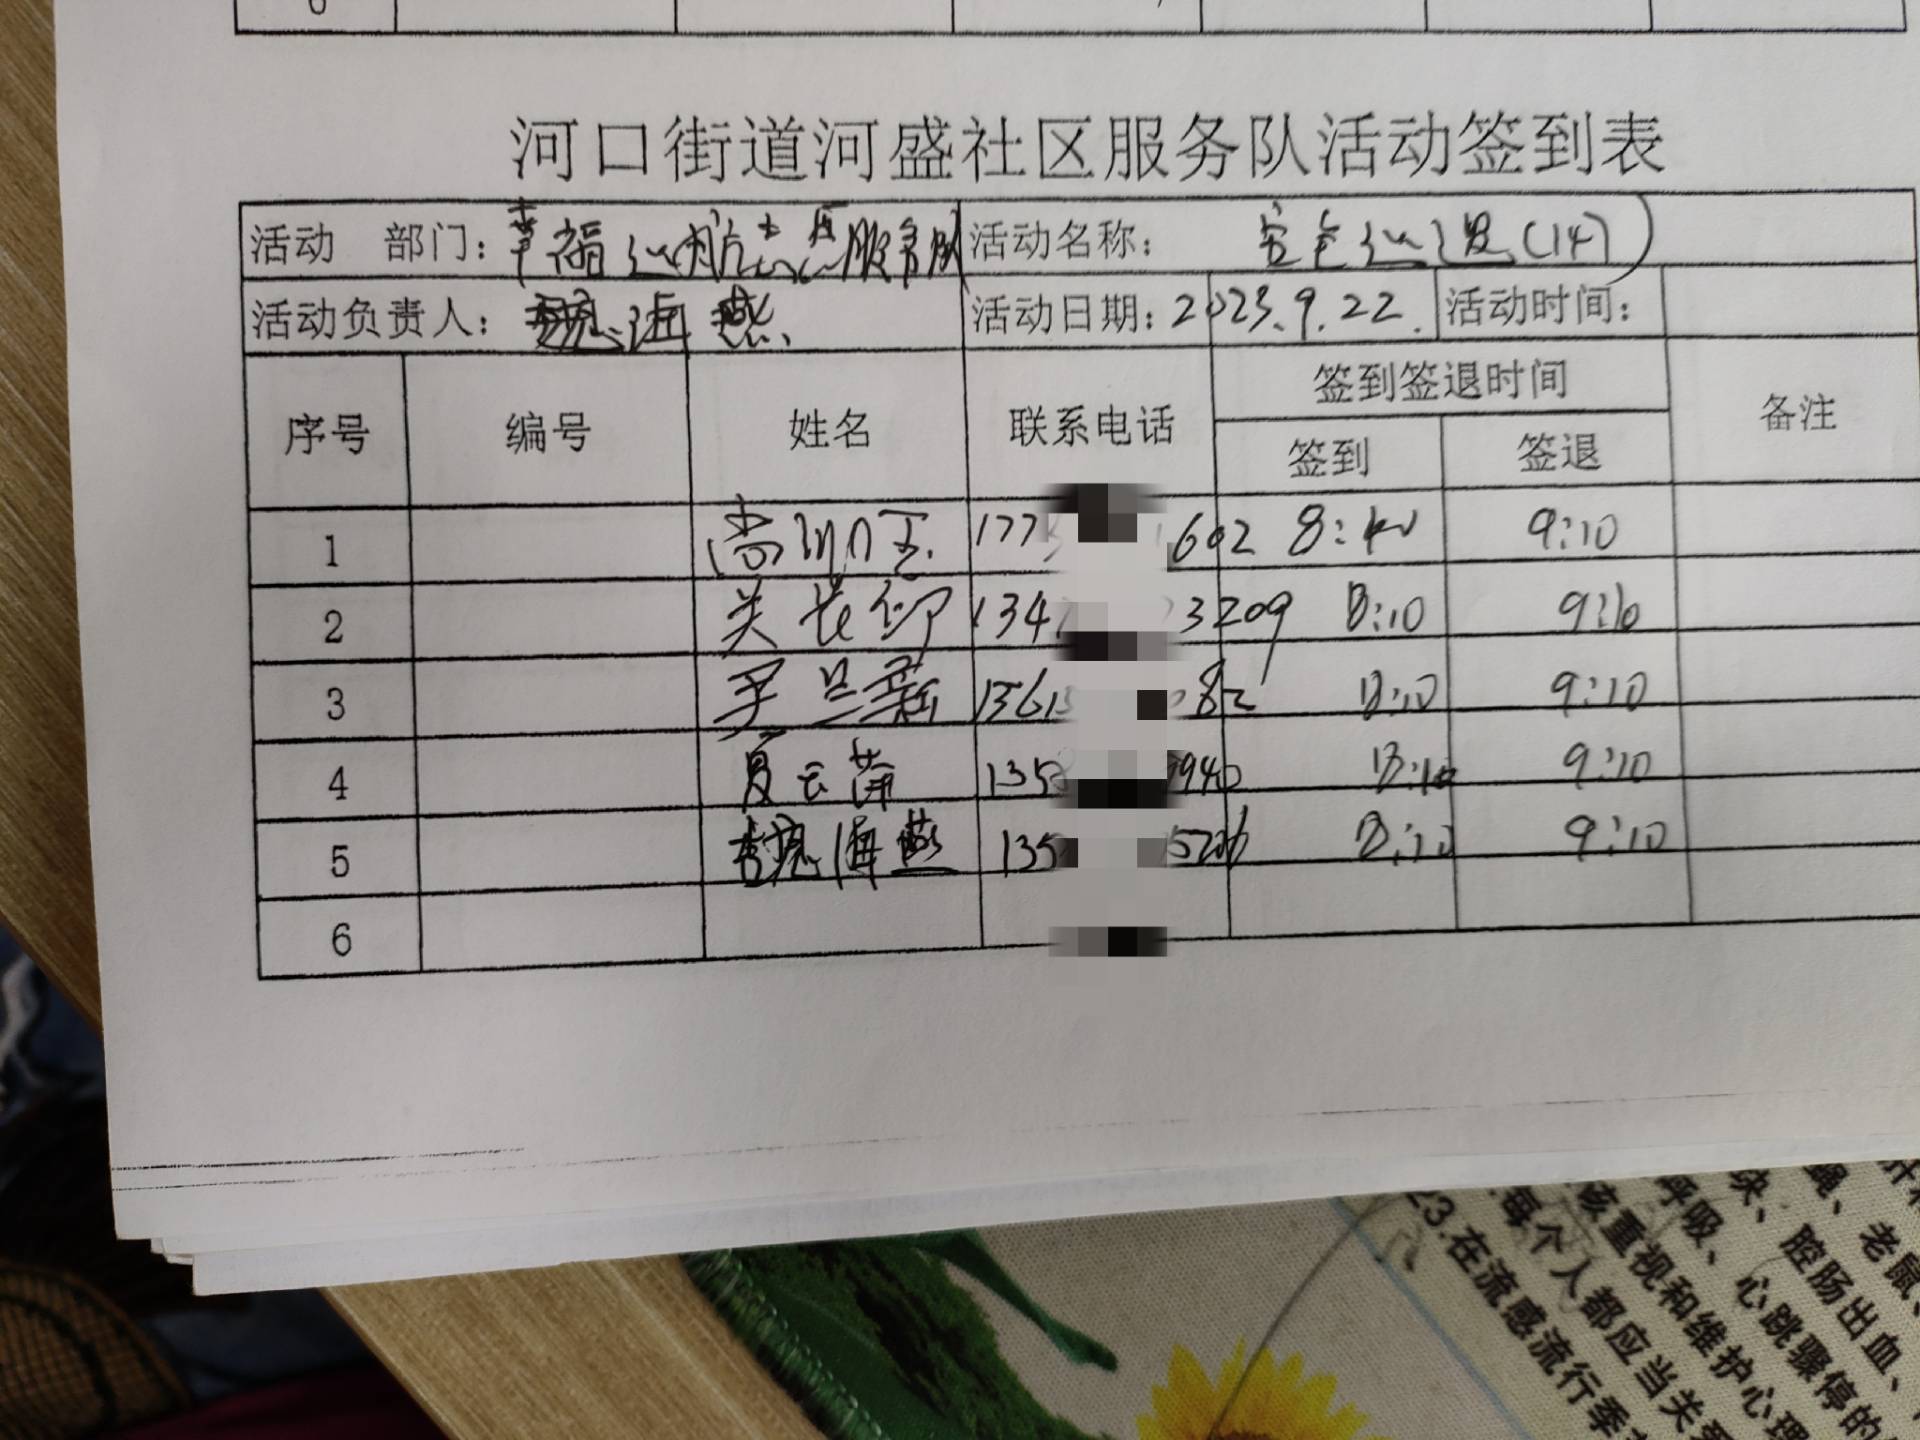 6
河口街道河盛社区服务队活动签到表
活动 部门：幸福巡航志愿服务队 活动名称： 安全巡逻(14)
活动负责人：魏海燕 活动日期：2023.9.22. 活动时间：
序号 编号 姓名 联系电话 签到签退时间 备注
签到 签退
1 177 602 8:40 9:10
2 关长 134 3209 8:10 9:10
3 1361 82 8:10 9:10
4 夏云 135 940 8:10 9:10
5 魏海燕 135 8:10 9:10
6
肝和
绳、老鼠、
块、腔肠出血、
呼吸、心跳骤停的
该重视和维护心理
每个人都应当关
23.在流感流行季